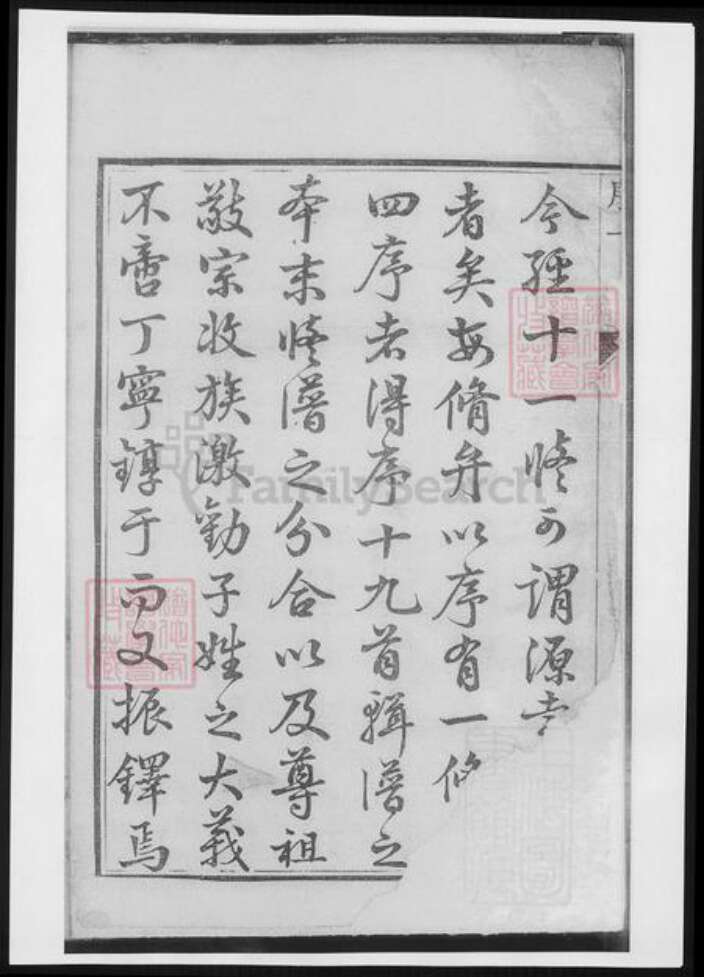 今經十一修可謂源
者矣每脩弁以序有一修
四序者得序十九首輯譜之
本末修譜之分合以及尊祖
敬宗收族激勸子姓之大義
不啻丁寧錞于而又振鐸焉
序一
FamilySearch